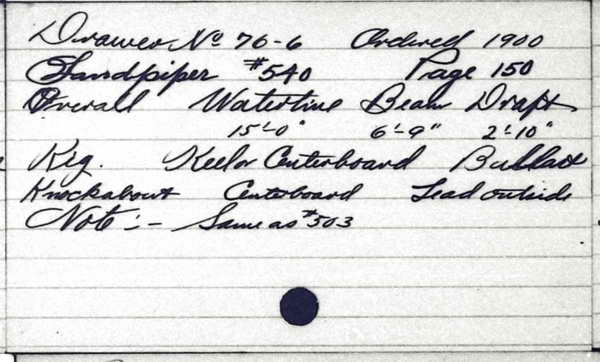 Drawer No 76-6 Ordered 1900
Sandpiper #540 Page 150
Overall Waterline Beam Draft
15'-0" 6'-9" 2'-10"
Rig. Keel or Centerboard Ballast
Knockabout Centerboard Lead outside
Note:- Same as #503